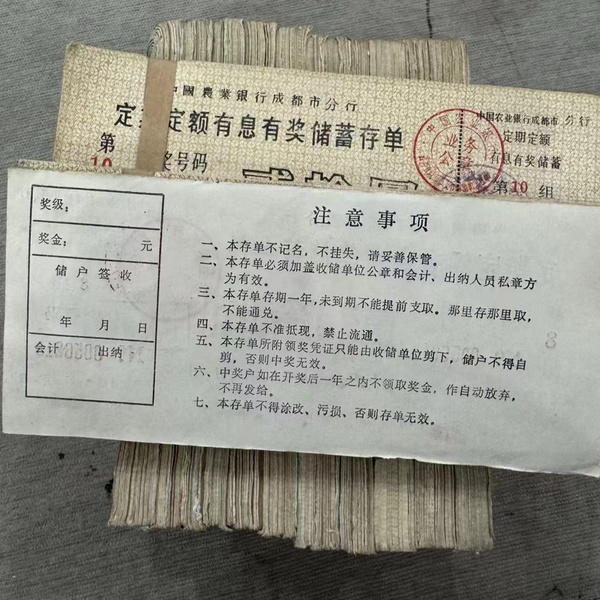 中國農業银行成都市分行
定 定额有息有奖储蓄存单
第
10
奖号码
中国农业银行成都市分行
定期定额
有息有奖储蓄
第10组
业务
公章
注意事项
一、本存单不记名，不挂失，请妥善保管。
二、本存单必须加盖收储单位公章和会计、出纳人员私章方
为有效。
三、本存单存期一年，未到期不能提前支取。那里存那里取，
不能通兑。
四、本存单不准抵现，禁止流通。
五、本存单所附领奖凭证只能由收储单位剪下，储户不得自
剪，否则中奖无效。
六、中奖户如在开奖后一年之内不领取奖金，作自动放弃，
不再发给。
七、本存单不得涂改、污损，否则存单无效。
奖级：
奖金： 元
储户签收
年 月 日
会计 出纳